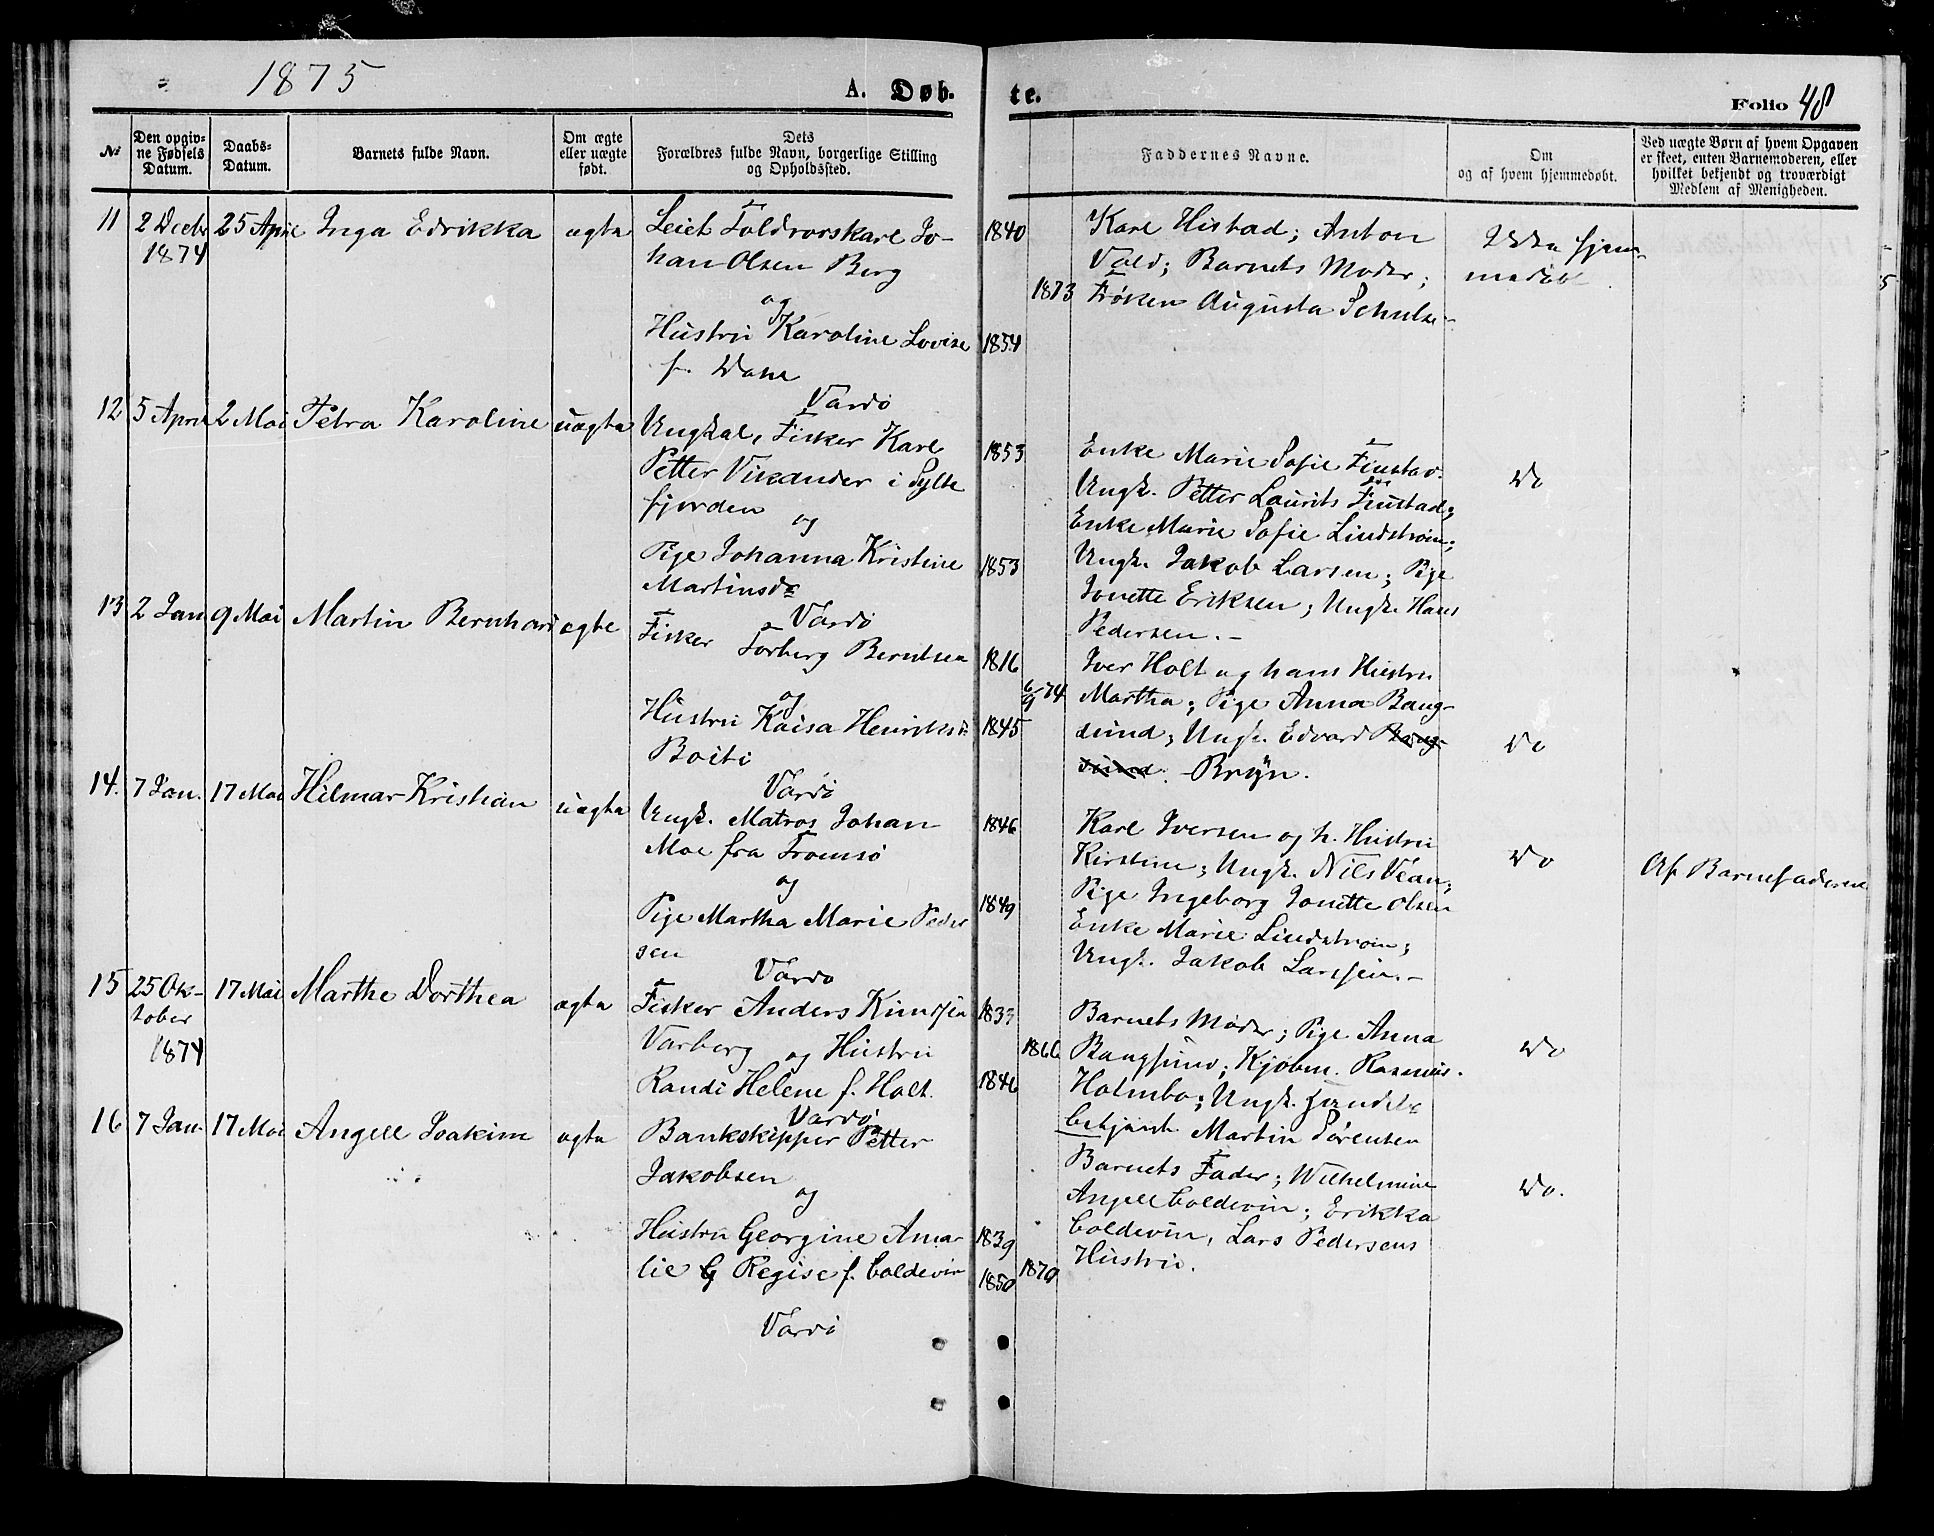 1875
A. Døb-
te.
Folio 48
№
Den opgiv-
ne Fødsels
Datum.
Daabs-
Datum.
Barnets fulde Navn.
Om ægte
eller uægte
født.
Dets
Forældres fulde Navn, borgerlige Stilling
og Opholdssted.
Faddernes Navne.
Om
og af hvem hjemmedøbt.
Ved uægte Børn af hvem Opgaven
er skeet, enten Barnemoderen, eller
hvilket bekjendt og troværdigt
Medlem af Menigheden.
11
2 Decbr
1874
25 April
Inga Edrikka
ægte
Toldrorskarl Jo-
han Olsen Berg
og
Hustru Karoline Lovise
f. Dahl
Vardö
1840
1854
1873
Karl Histad; Anton
Vold; Barnets Moder;
Fröken Augusta Schulze
Ikke hjem-
medöbt
12
5 April
2 Mai
Petra Karoline
uægte
Ungkal, Fisker Karl
Petter Vikander i Sylte
fjorden
og
Pige Johanna Kristine
Martinsdr
Vardö
1853
1853
Enke Marie Sofie Finstad.
Ungk. Petter Laurits Finstad;
Enke Marie Sofie Lindström;
Ungk. Jakob Larsen; Pige
Jonette Eriksen; Ungk. Hans
Pedersen. -
Do
13
2 Jan
9 Mai
Martin Bernhard
ægte
Fisker Torberg Berntsen
og
Hustru Kaisa Henriksd
Boiti
Vardö
1816
1845
6/9 74
Iver Holt og hans Hustru
Martha; Pige Anna Bang-
sund; Ungk. Edvard Bang-
sund. Bryn.
Do
14.
7 Jan.
17 Mai
Hilmar Kristian
uægte
Ungk. Matros Johan
Moe fra Tromsö
og
Pige Martha Marie Peder
sen
Vardö
1846
1849
Karl Iversen og h. Hustru
Kirstine; Ungk. Nils Vean;
Pige Ingeborg Jonette Olsen
Enke Marie Lindström;
Ungk. Jakob Larssen. -
Do
Af Barnefaderen
15
25 Ok-
tober
1874
17 Mai
Marthe Dorthea
ægte
Fisker Anders Knudsen
Varberg og Hustru
Randi Helene f. Holt.
Vardö
1833
1846
1866
Barnets Moder; Pige Anna
Bangsund; Kjöbm. Rasmus
Holmbo; Ungk. Handels
betjent Martin Sörensen
Do
16
7 Jan.
17 Mai
Angell Joakim
ægte
Bankskipper Petter
Jakobsen
og
Hustru Georgine Ama-
lie G Regise f. Coldevin
Vardö
1839
1850
1870
Barnets Fader; Wilhelmine
Angell Coldevin; Erikka
Coldevin, Lars Pedersens
Hustru.
Do.